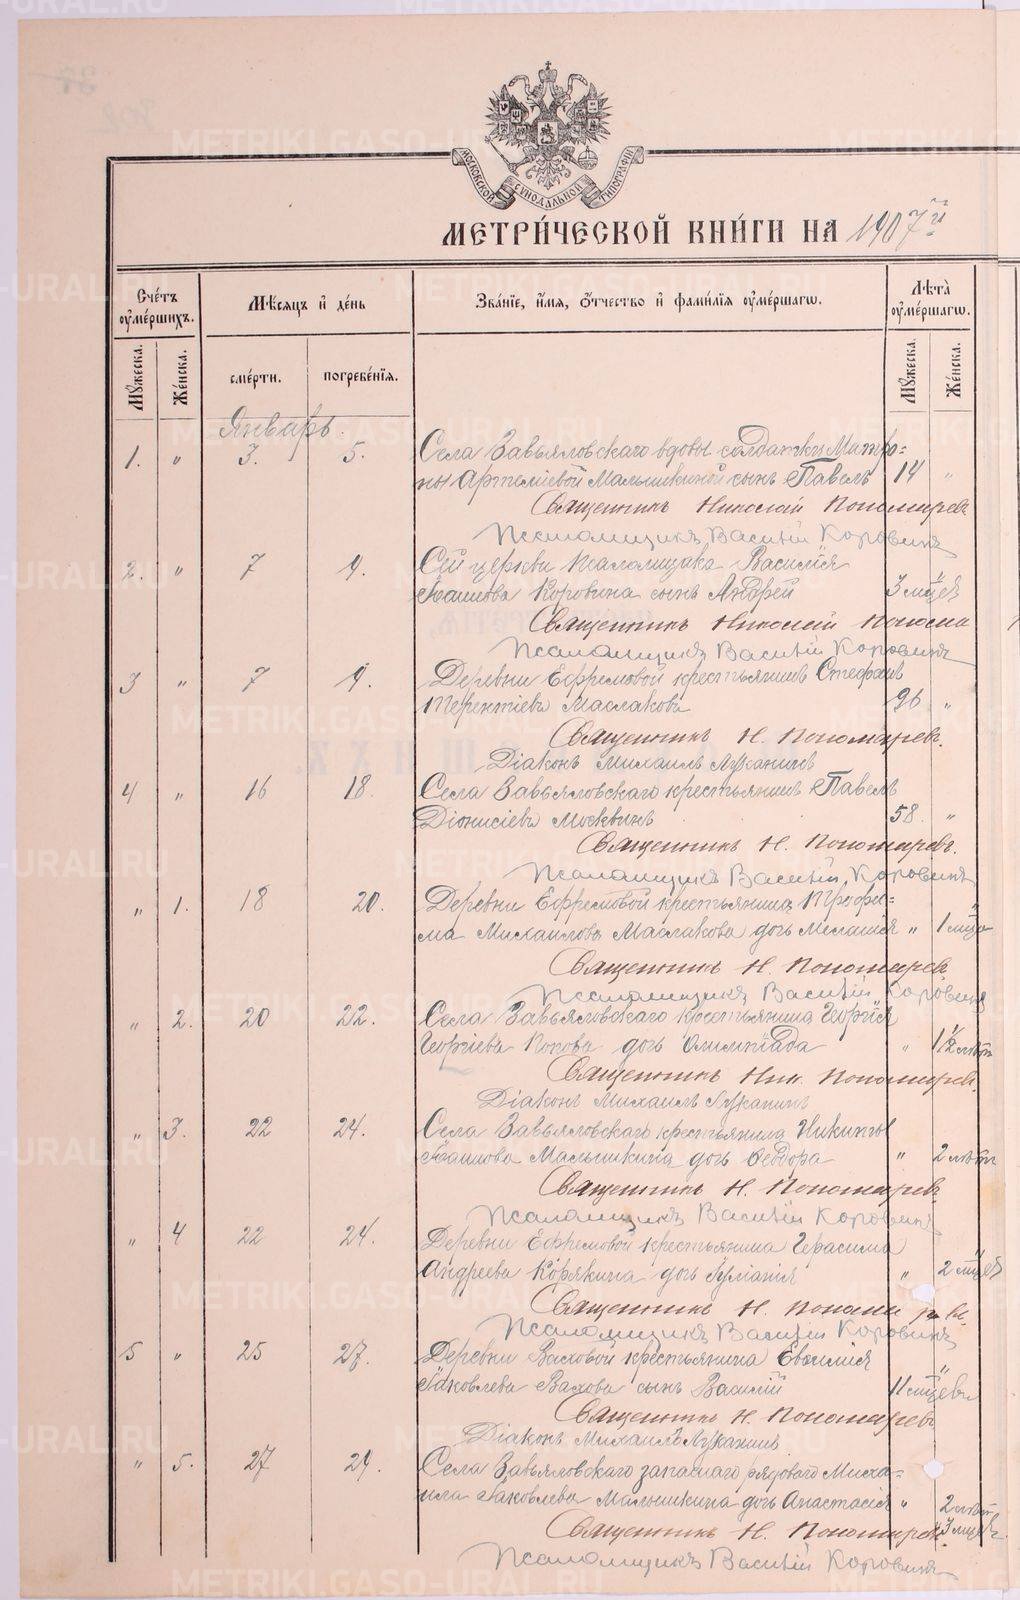 МОСКОВСКОЙ СУНОДАЛЬНОЙ ТИПОГРАФІИ
МЕТРИ́ЧЕСКОЙ КНИ́ГИ НА 1907й
Сче́тъ ᲂу҆ме́ршихъ. Мѣ́сѧцъ и҆ де́нь Зва́нїе, и҆́мѧ, ѻ҆́тчество и҆ фами́лїѧ ᲂу҆ме́ршагѡ. Лѣ́та ᲂу҆ме́ршагѡ.
Мꙋ́жеска. Же́нска. сме́рти. погребе́нїѧ. Мꙋ́жеска. Же́нска.
Январь.
1. " 3. 5. Села Завьяловскаго вдовы солдатки Матро=
ны Артеміевой Малышкиной сынъ Павелъ 14 "
Священникъ Николай Пономаревъ
Псаломщикъ Василій Коровинъ
2. " 7 9. Сей церкви Псаломщика Василія
Іоаннова Коровина сынъ Андрей 3 мѣсцев "
Священникъ Николай Понома
Псаломщикъ Василій Коровинъ
3 " 7 9. Деревни Ефремовой крестьянинъ Стефанъ
Терентіевъ Маслаковъ 96 "
Священникъ Н. Пономаревъ.
Діаконъ Михаилъ Луканинъ
4 " 16 18. Села Завьяловскаго крестьянинъ Павелъ
Діонисіевъ Москвинъ 58. "
Священникъ Н. Пономаревъ.
Псаломщикъ Василій Коровинъ
" 1. 18 20. Деревни Ефремовой крестьянина Трофи=
ма Михаилова Маслакова дочь Меланія " 1 мца
Священникъ Н. Пономаревъ
Псаломщикъ Василій Коровинъ
" 2. 20 22. Села Завьяловскаго крестьянина Георгія
Георгіева Попова дочь Олимпіада " 1½ лѣтъ
Священникъ Ник. Пономаревъ.
Діаконъ Михаилъ Луканинъ
" 3. 22 24. Села Завьяловскаго крестьянина Никиты
Іоаннова Малышкина дочь Ѳеодора " 2 лѣтъ
Священникъ Н. Пономаревъ
Псаломщикъ Василій Коровинъ
" 4 22 24. Деревни Ефремовой крестьянина Герасима
Андреева Корякина дочь Іуліанія " 2 мцев
Священникъ Н. Пономаревъ.
Псаломщикъ Василій Коровинъ
5 " 25 27. Деревни Ваховой крестьянина Евфимія
Іаковлева Вахова сынъ Василій 11 мцевъ "
Священникъ Н. Пономаревъ
Діаконъ Михаилъ Луканинъ
" 5. 27 29. Села Завьяловскаго запаснаго рядового Миха=
ила Іаковлева Малышкина дочь Анастасія " 2 лѣтъ
Священникъ Н. Пономаревъ 3 мцев.
Псаломщикъ Василій Коровинъ
METRIKI.GASO-URAL.RU